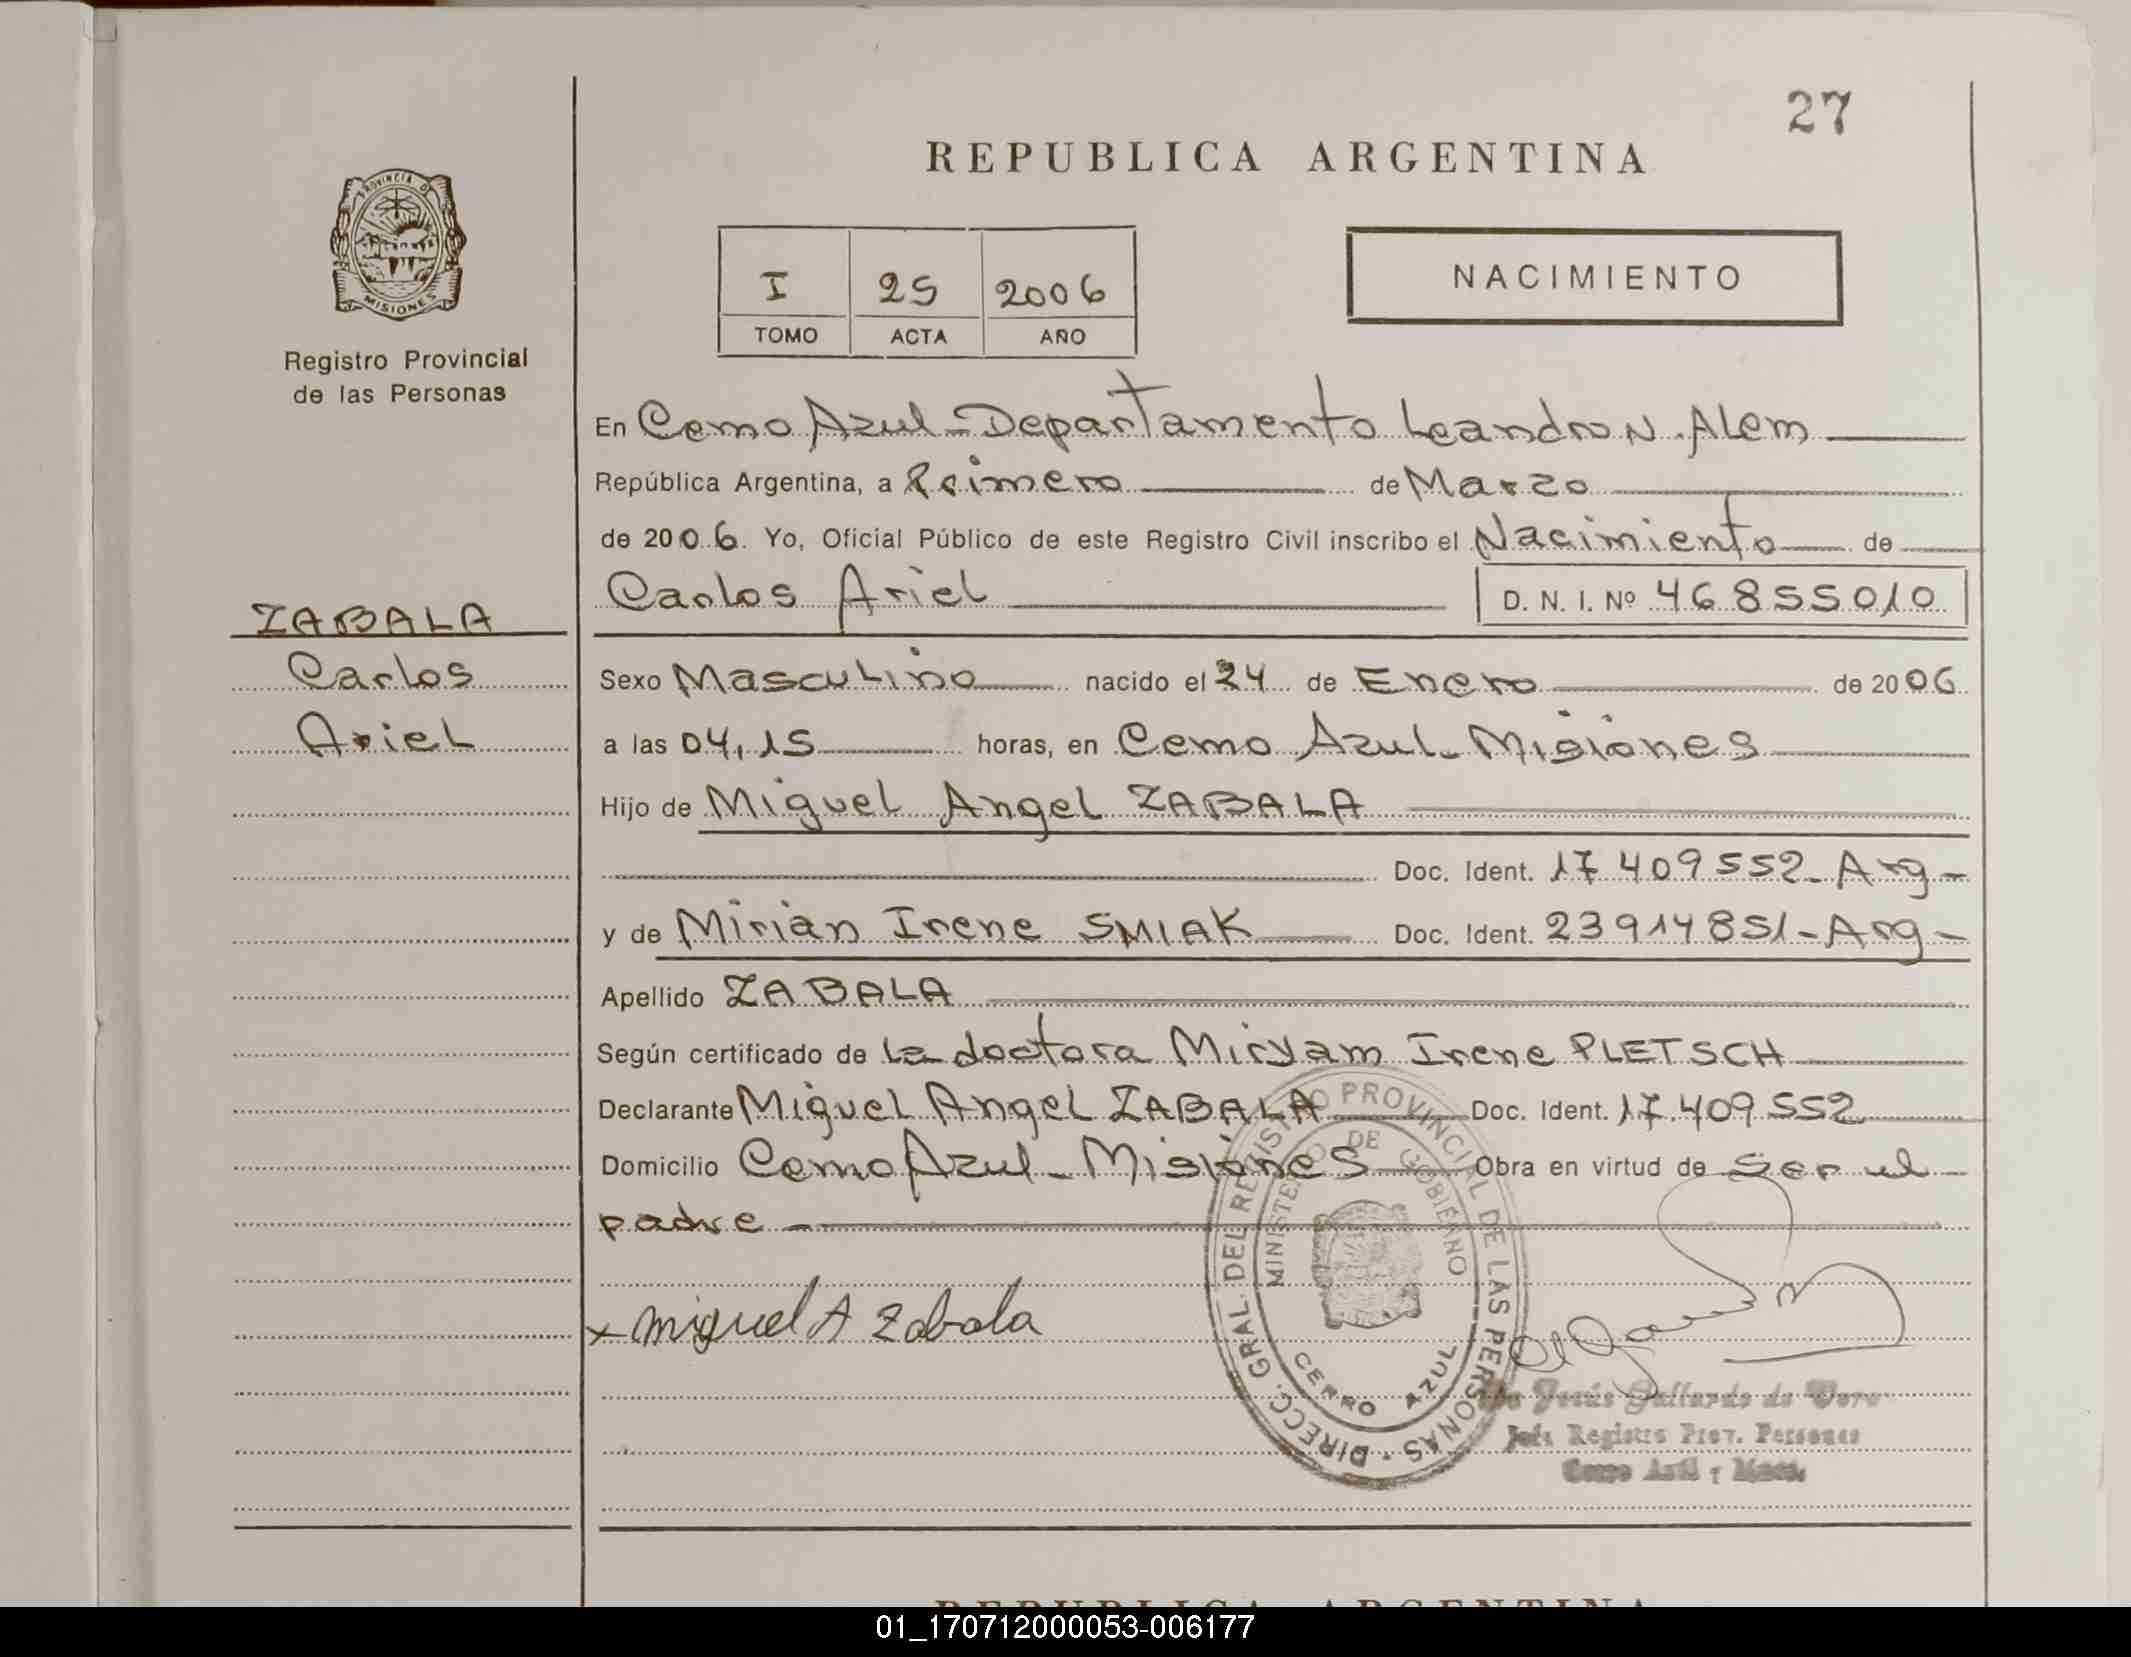 27
REPUBLICA ARGENTINA
PROVINCIA DE
MISIONES
Registro Provincial
de las Personas
I 25 2006
TOMO ACTA AÑO
NACIMIENTO
En Cerro Azul - Departamento Leandro N. Alem
República Argentina, a Primero de Marzo
de 2006. Yo, Oficial Público de este Registro Civil inscribo el Nacimiento de
Carlos Ariel D. N. I. Nº 46855010
ZABALA
Carlos
Ariel
Sexo Masculino nacido el 24 de Enero de 2006
a las 04,15 horas, en Cerro Azul - Misiones
Hijo de Miguel Angel ZABALA
Doc. Ident. 17 409 552 - Arg -
y de Mirian Irene SMIAK Doc. Ident. 23914851 - Arg -
Apellido ZABALA
Según certificado de La doctora Miryam Irene PLETSCH
Declarante Miguel Angel ZABALA Doc. Ident. 17.409 552
Domicilio Cerro Azul - Misiones Obra en virtud de ser el
padre
x miguel A Zabala
DIRECC. GRAL. DEL REGISTRO PROVINCIAL DE LAS PERSONAS
MINISTERIO DE GOBIERNO
CERRO AZUL
Jesús Gallardo de
Registro Prov. Personas
REPUBLICA ARGENTINA
01_170712000053-006177